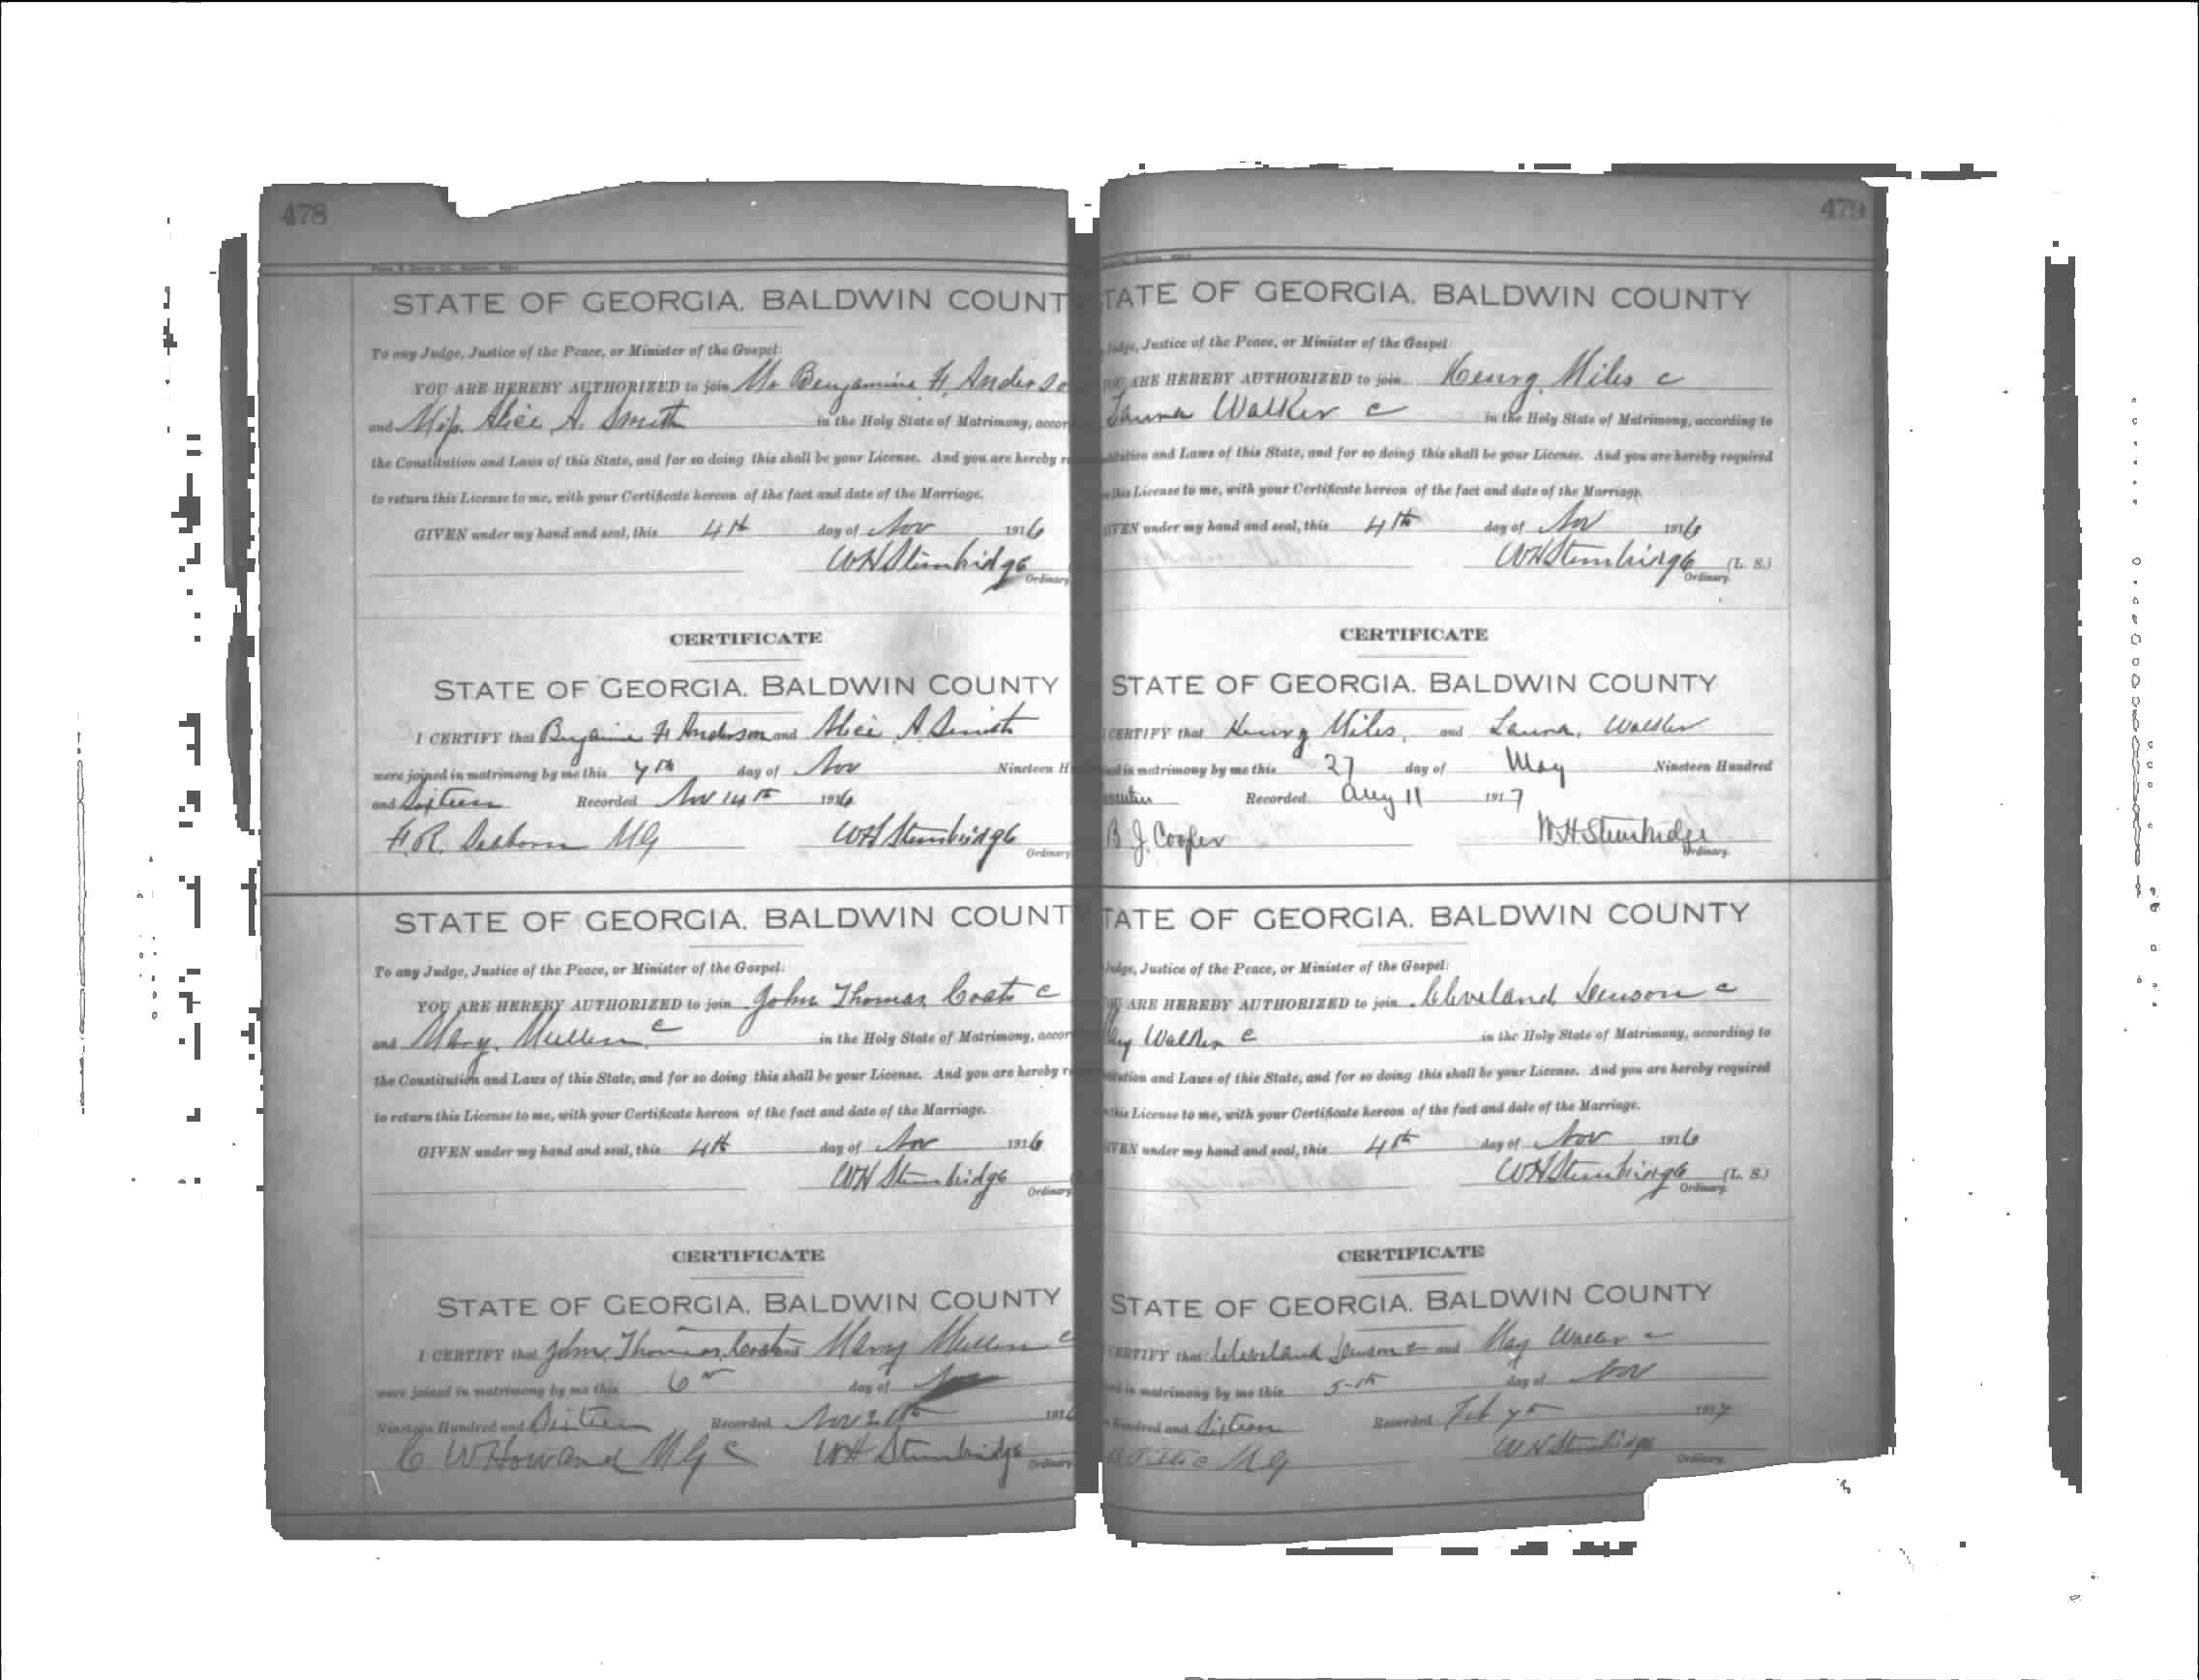 478
STATE OF GEORGIA. BALDWIN COUNT
To any Judge, Justice of the Peace, or Minister of the Gospel:
YOU ARE HEREBY AUTHORIZED to join Mr Benjamine H. Anderso
and Miss. Alice A. Smith in the Holy State of Matrimony, accor
the Constitution and Laws of this State, and for so doing this shall be your License. And you are hereby r
to return this License to me, with your Certificate hereon of the fact and date of the Marriage.
GIVEN under my hand and seal, this 4th day of Nov 1916
WH Stembridge
Ordinary
CERTIFICATE
STATE OF GEORGIA. BALDWIN COUNTY
I CERTIFY that H Anderson and Alice A. Smith
were joined in matrimony by me this day of Nov Nineteen H
and Sixteen Recorded Nov 14th 1916
MG WH Stembridge
Ordinary
STATE OF GEORGIA. BALDWIN COUNT
To any Judge, Justice of the Peace, or Minister of the Gospel:
YOU ARE HEREBY AUTHORIZED to join John Thomas Coats c
and Mary Mullen c in the Holy State of Matrimony, accor
the Constitution and Laws of this State, and for so doing this shall be your License. And you are hereby r
to return this License to me, with your Certificate hereon of the fact and date of the Marriage.
GIVEN under my hand and seal, this 4th day of Nov 1916
WH Stembridge
Ordinary
CERTIFICATE
STATE OF GEORGIA. BALDWIN COUNTY
I CERTIFY that John Thomas Mary Mullen c
were joined in matrimony by me this 6th day of Nov
Nineteen Hundred and Sixteen Recorded Nov 1916
C W Howard MG c WH Stembridge
Ordinary
479
TATE OF GEORGIA. BALDWIN COUNTY
Judge, Justice of the Peace, or Minister of the Gospel:
YOU ARE HEREBY AUTHORIZED to join Henry Miles c
Laura Walker c in the Holy State of Matrimony, according to
and Laws of this State, and for so doing this shall be your License. And you are hereby required
this License to me, with your Certificate hereon of the fact and date of the Marriage.
GIVEN under my hand and seal, this 4th day of Nov 1916
WH Stembridge (L. S.)
Ordinary.
CERTIFICATE
STATE OF GEORGIA. BALDWIN COUNTY
CERTIFY that Henry Miles, and Laura, Walker
in matrimony by me this 27 day of May Nineteen Hundred
Recorded Aug 11 1917
B J. Cooper W.H Stembridge
Ordinary.
TATE OF GEORGIA. BALDWIN COUNTY
Judge, Justice of the Peace, or Minister of the Gospel:
ARE HEREBY AUTHORIZED to join Cleveland Denson c
Walker c in the Holy State of Matrimony, according to
and Laws of this State, and for so doing this shall be your License. And you are hereby required
this License to me, with your Certificate hereon of the fact and date of the Marriage.
GIVEN under my hand and seal, this 4th day of Nov 1916
WH Stembridge (L. S.)
Ordinary.
CERTIFICATE
STATE OF GEORGIA. BALDWIN COUNTY
CERTIFY that Cleveland Denson c and May Walker c
in matrimony by me this 5th day of Nov
Hundred and Sixteen Recorded Feb 1917
MG WH Stembridge
Ordinary.